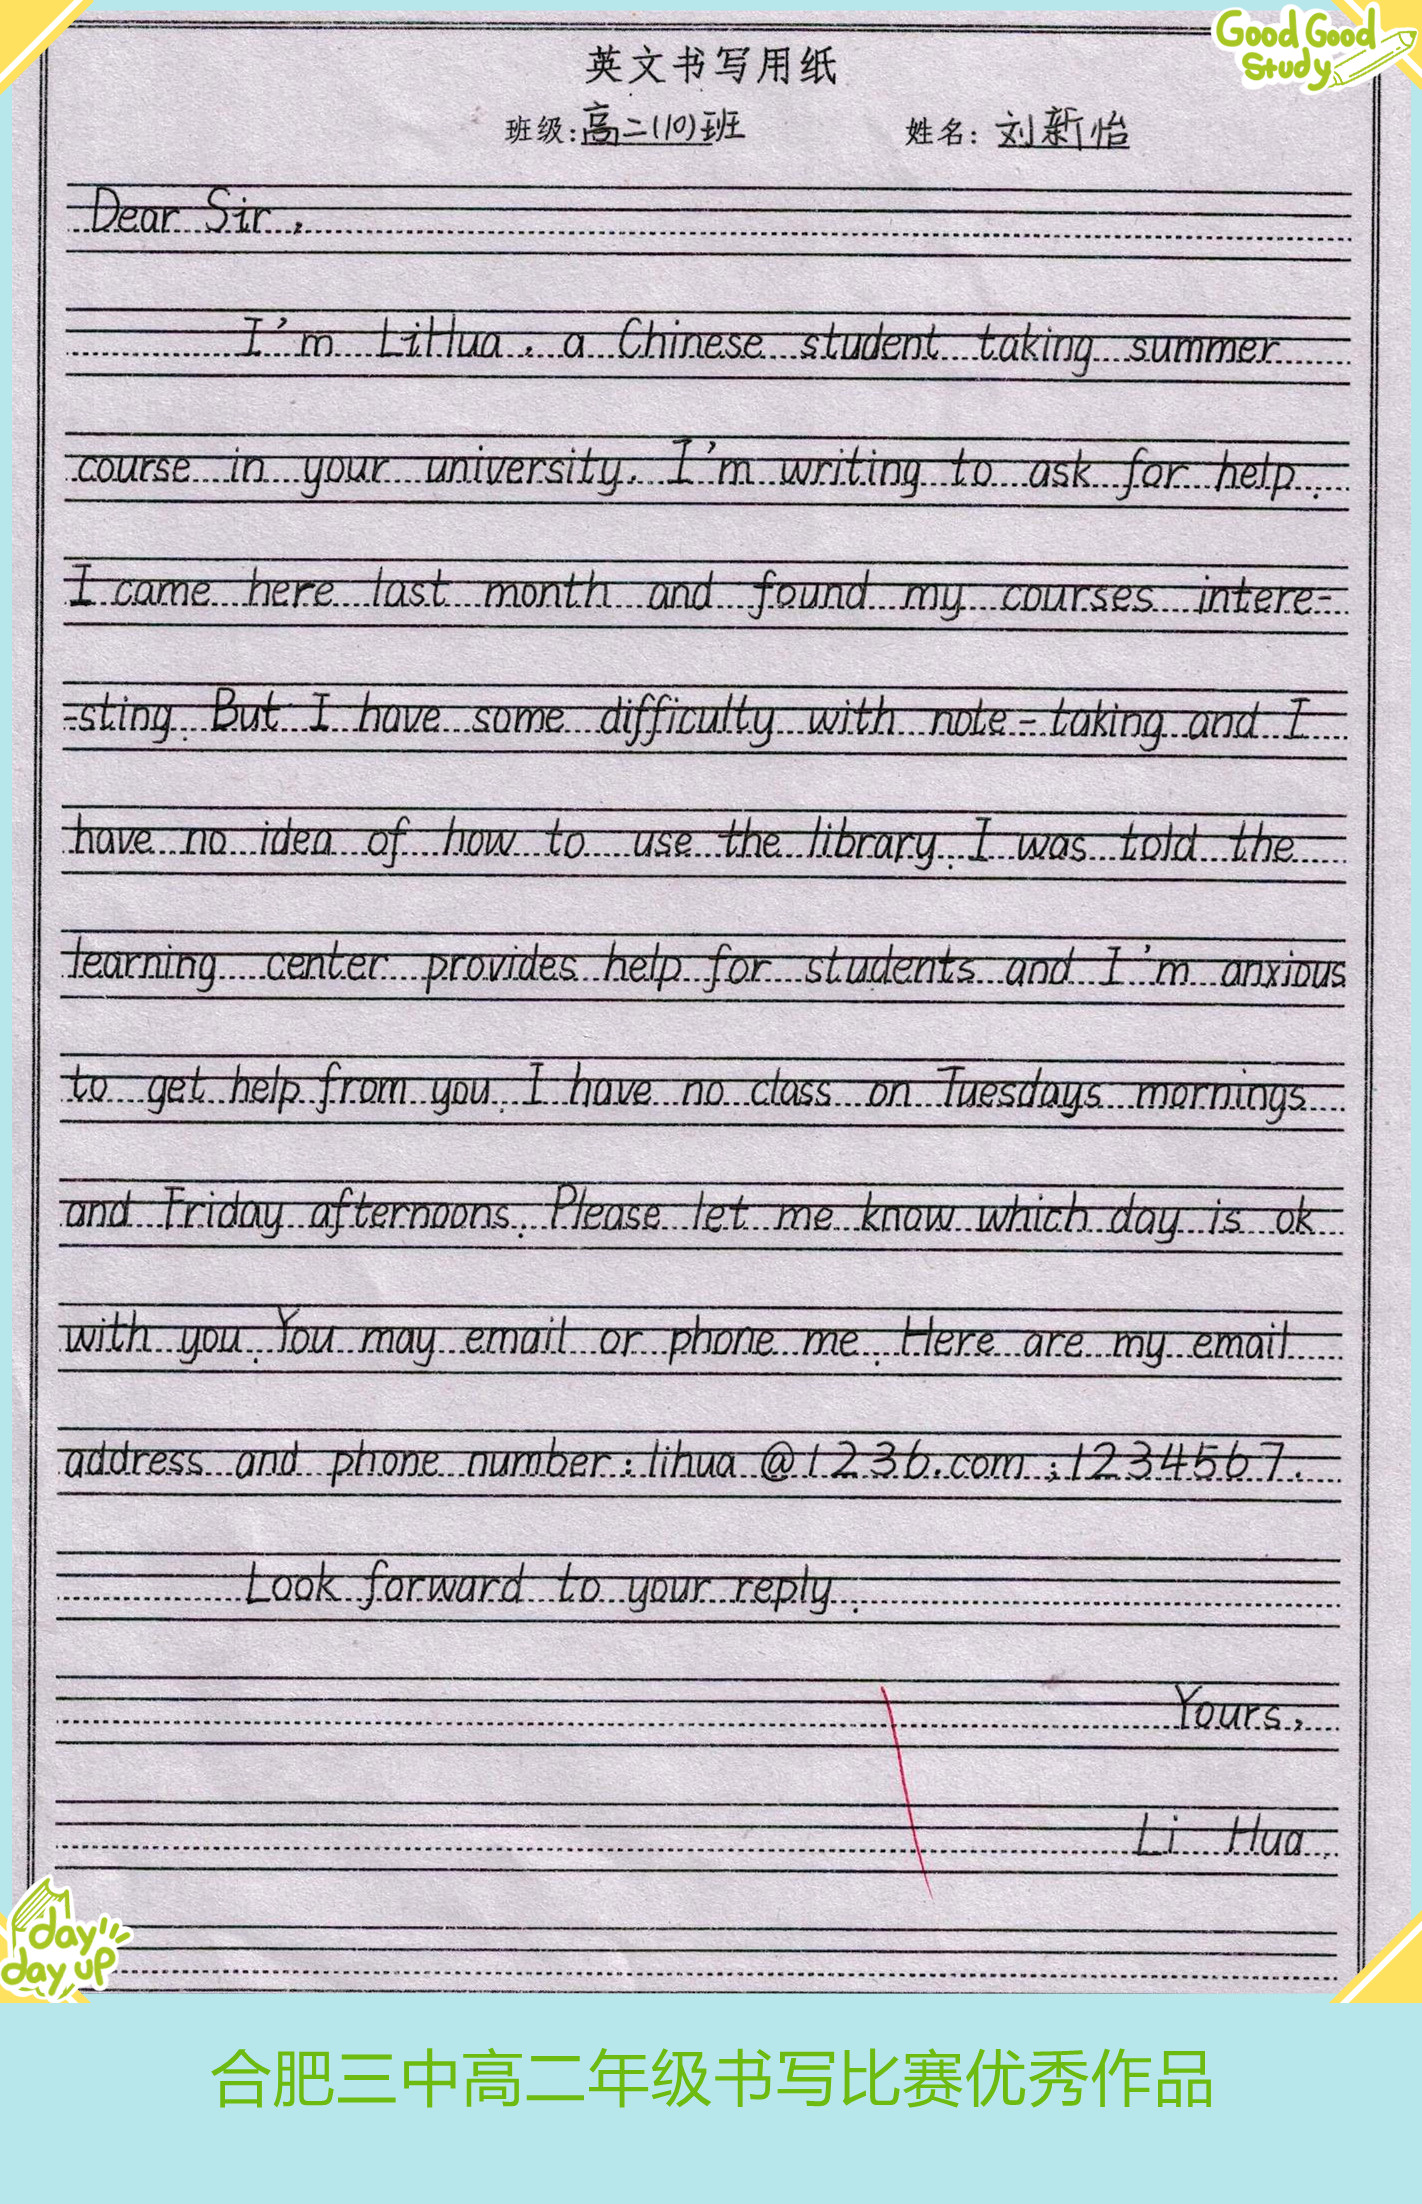 Good Good
Study
英文书写用纸
班级:高二(10)班 姓名: 刘新怡
Dear Sir,
I'm LiHua, a Chinese student taking summer
course in your university. I'm writing to ask for help.
I came here last month and found my courses intere-
-sting. But I have some difficulty with note-taking and I
have no idea of how to use the library. I was told the
learning center provides help for students and I'm anxious
to get help from you. I have no class on Tuesdays mornings
and Friday afternoons. Please let me know which day is ok
with you. You may email or phone me. Here are my email
address and phone number: lihua@1236.com;1234567.
Look forward to your reply.
Yours,
Li Hua.
day
day up
合肥三中高二年级书写比赛优秀作品